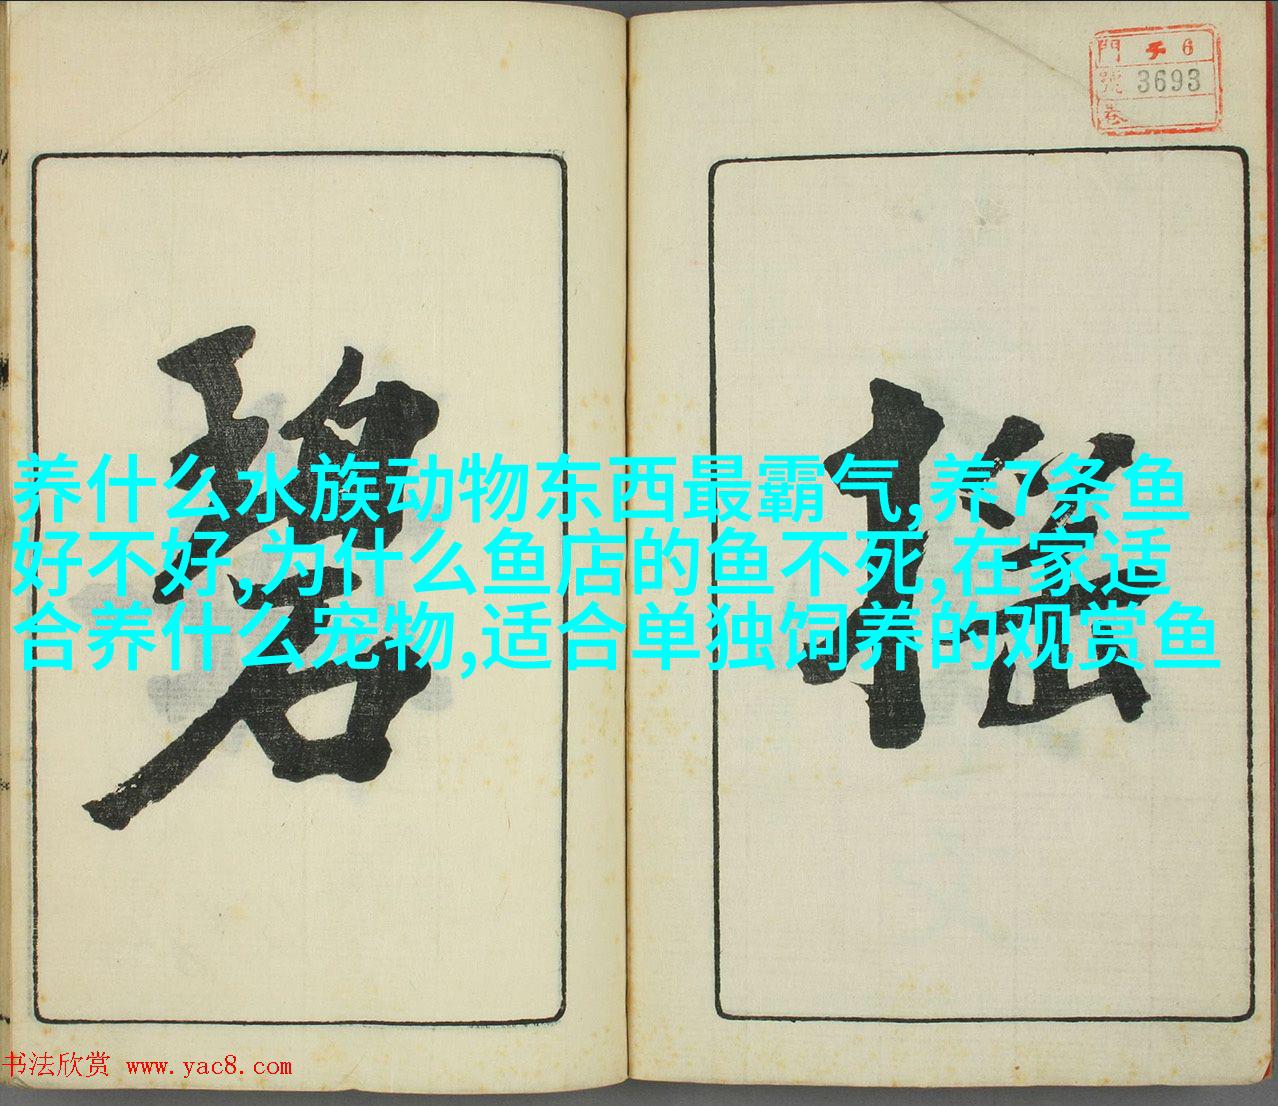 門 チ 6
號 3693
巻
搖
碧
养什么水族动物东西最霸气,养7条鱼
好不好,为什么鱼店的鱼不死,在家适
合养什么宠物,适合单独饲养的观赏鱼
书法欣赏 www.yac8.com